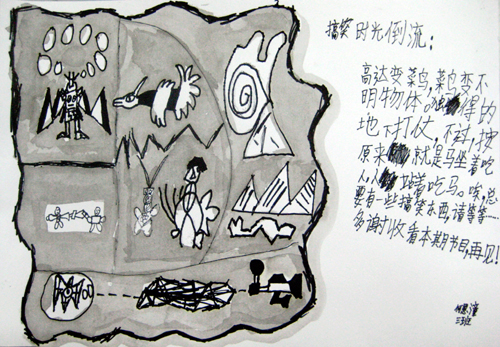 搞笑时光倒流：
高达变菜鸟，菜鸟变不
明物体。 得的
地下打仗，不动，按
原来 就是马坐着吃
人，人 站着吃马。唉，总
要有一些搞笑东西，请等等……
多谢收看本期节目，再见！
三班